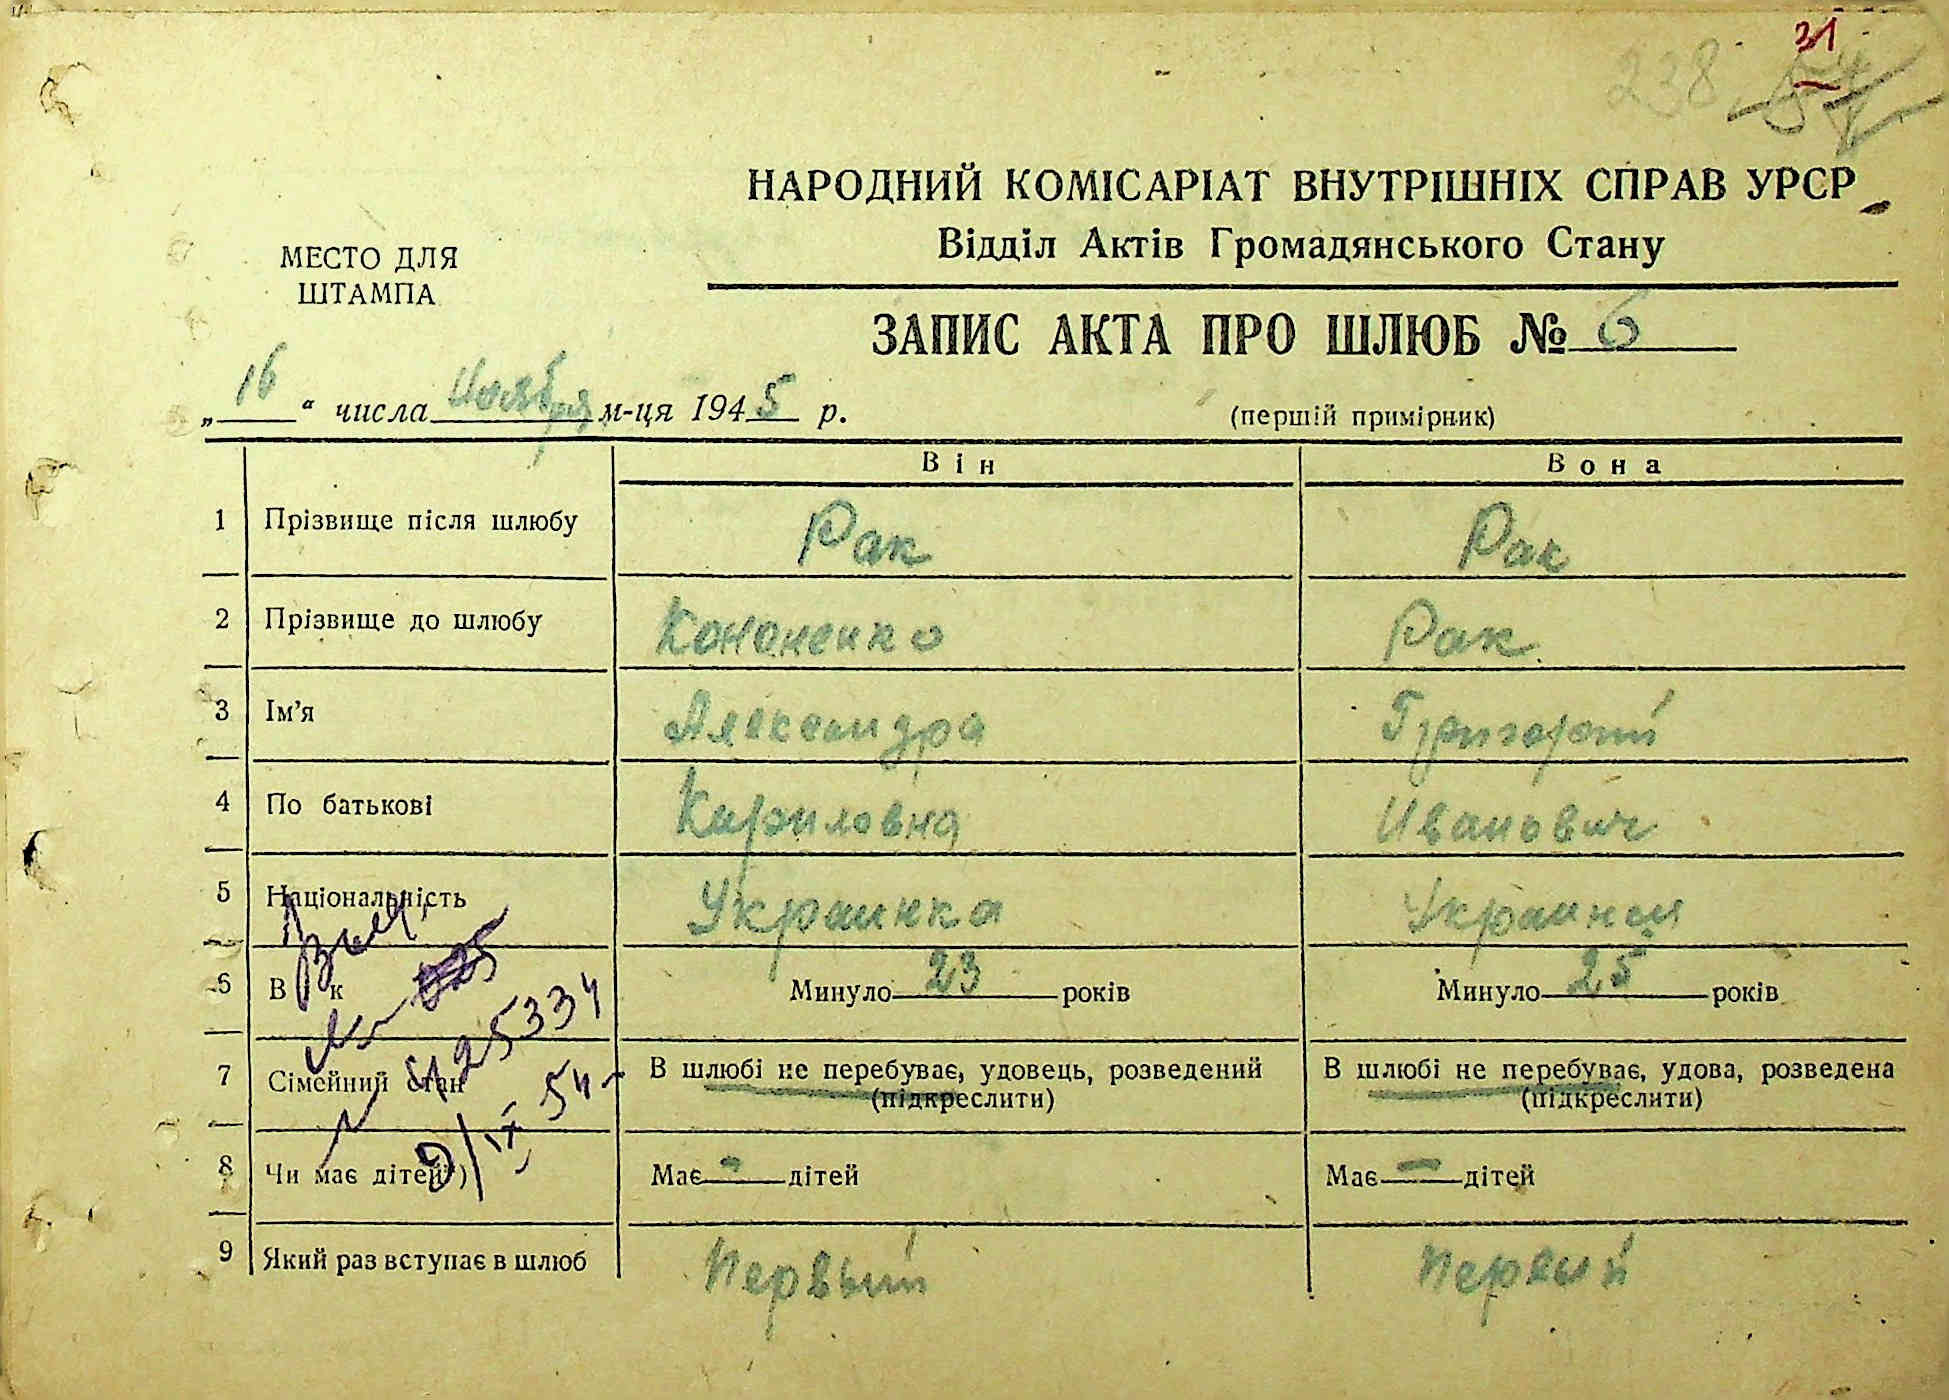 31
238 54
НАРОДНИЙ КОМІСАРІАТ ВНУТРІШНІХ СПРАВ УРСР
Відділ Актів Громадянського Стану
МЕСТО ДЛЯ
ШТАМПА
ЗАПИС АКТА ПРО ШЛЮБ № 6
„16“ числа Ноября м-ця 1945 р.
(перший примірник)
Він Вона
1 Прізвище після шлюбу Рак Рак
2 Прізвище до шлюбу Кононенко Рак
3 Ім'я Александра Григорий
4 По батькові Кириловна Иванович
5 Національність Украинка Украинец
6 Вік Минуло 23 років Минуло 25 років
7 Сімейний стан В шлюбі не перебуває, удовець, розведений (підкреслити) В шлюбі не перебуває, удова, розведена (підкреслити)
8 Чи має дітей*) Має - дітей Має - дітей
9 Який раз вступає в шлюб Первый Первый
425334
9/IX 54